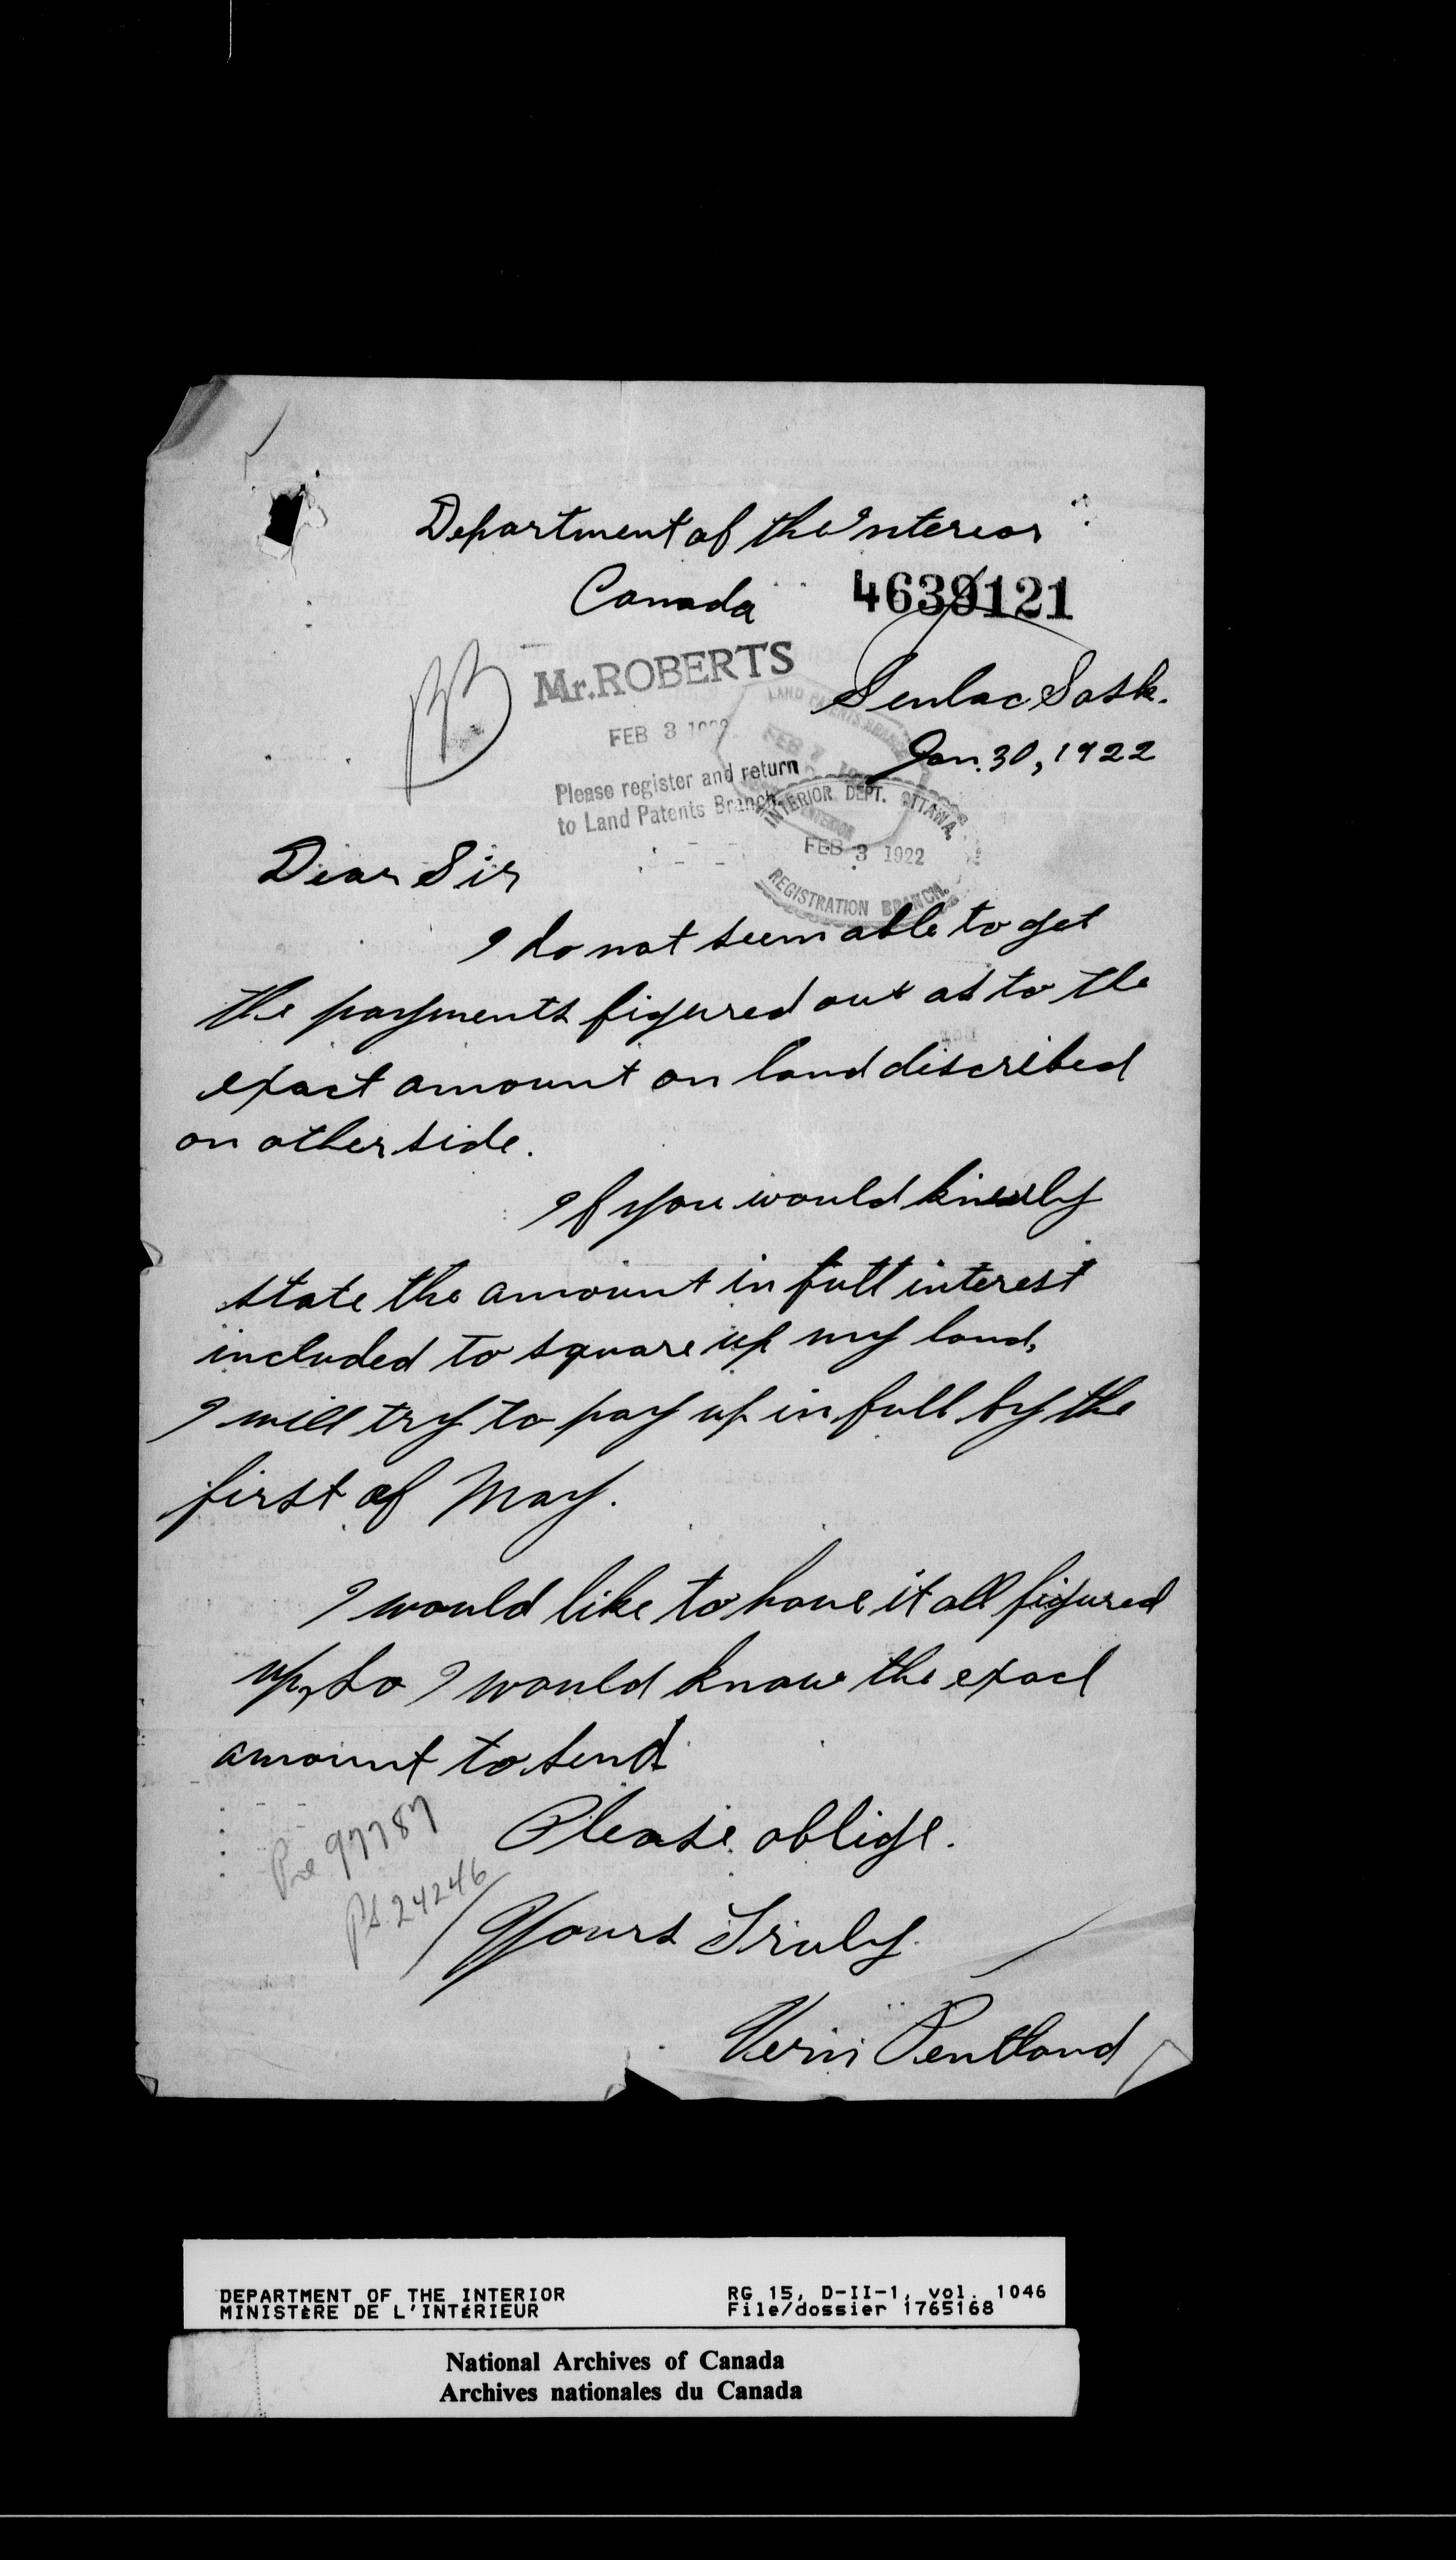 Department of the Interior
Canada
4639121
Mr. ROBERTS
FEB 3 1922
Please register and return
to Land Patents Branch
Senlac Sask.
Jan. 30, 1922
LAND PATENTS BRANCH
FEB 7
INTERIOR
INTERIOR DEPT. OTTAWA,
FEB 3 1922
REGISTRATION BRANCH.
Dear Sir
I do not seem able to get
the payments figured out as to the
exact amount on land discribed
on other side.
If you would kindly
state the amount in full interest
included to square up my land,
I will try to pay up in full by the
first of May.
I would like to have it all figured
up, so I would know the exact
amount to send.
Please oblige.
Pre 97787
PS 24246
Yours Truly.
Vern Pentland
DEPARTMENT OF THE INTERIOR
MINISTÈRE DE L'INTÉRIEUR
RG 15, D-II-1, vol. 1046
File/dossier 1765168
National Archives of Canada
Archives nationales du Canada